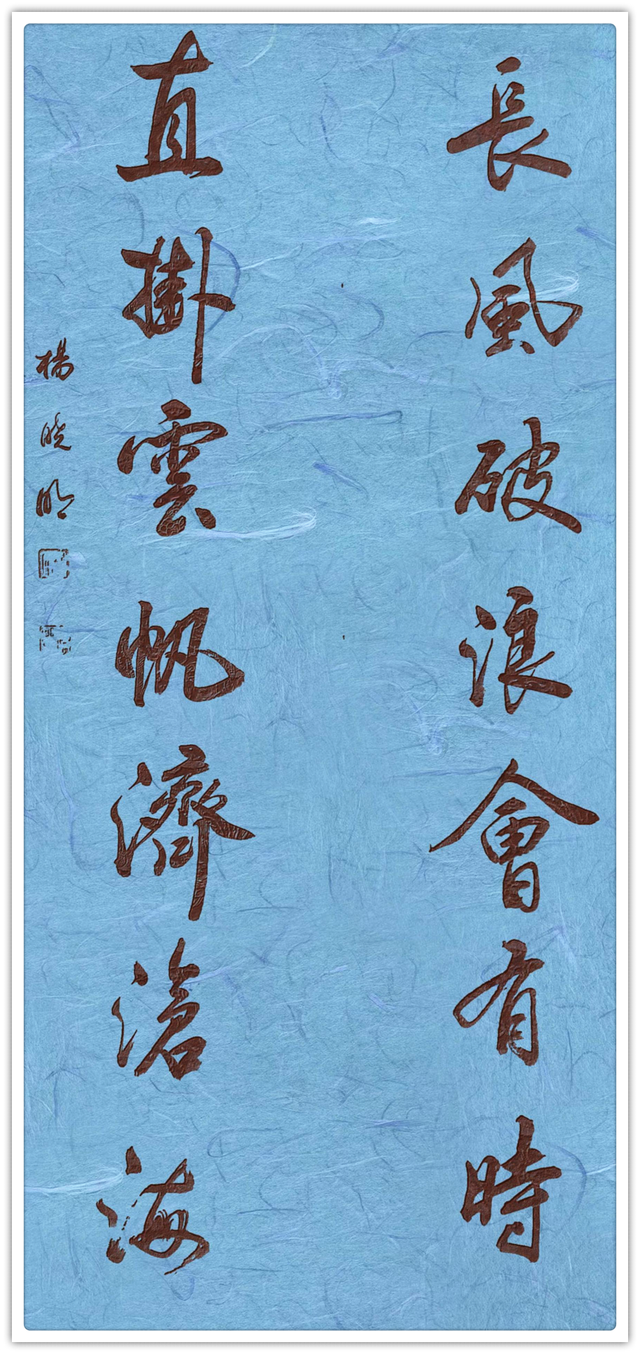 長風破浪會有時
直掛雲帆濟滄海
楊晓明